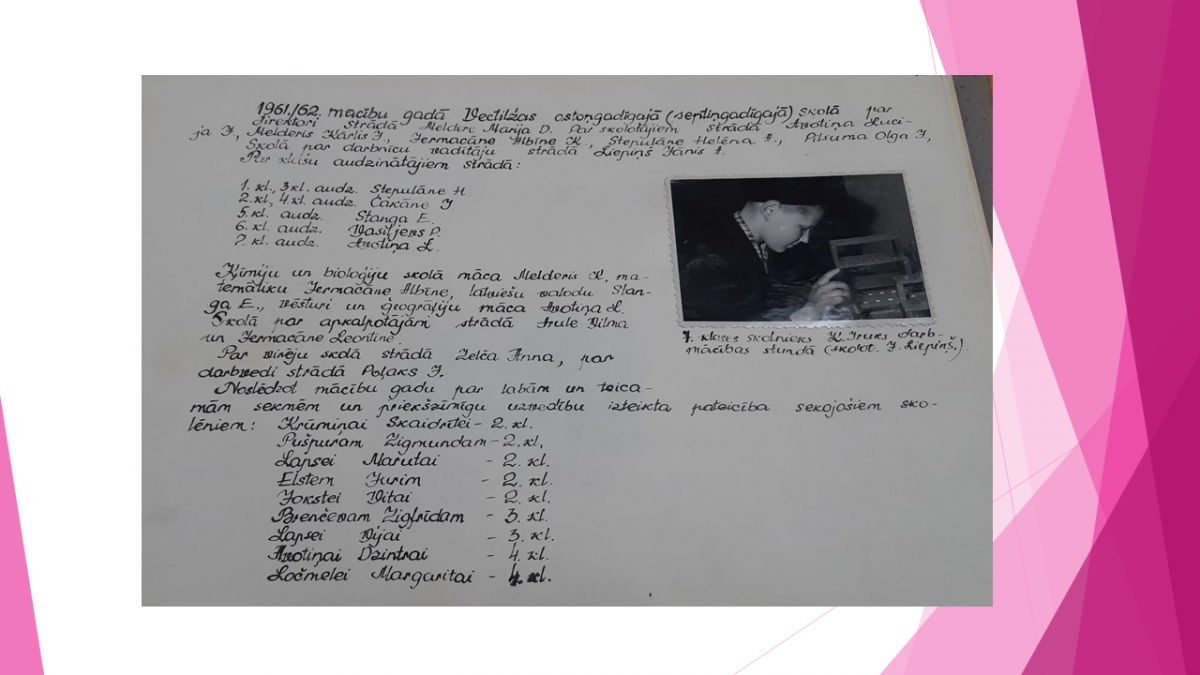 1961./62. mācību gadā Vectilžas astoņgadīgajā (septiņgadīgajā) skolā par
direktori strādā Meldere Marija D. Par skolotājiem strādā Avotiņa Luci-
ja J., Melderis Kārlis J., Jermacāne Albīne K., Stepulāne Helēna A., Pilsuma Olga J,
Skolā par darbnīcu vadītāju strādā Liepiņš Jānis A.
Par klašu audzinātājiem strādā:
1. kl., 3 kl. audz. Stepulāne H
2. kl., 4. kl. audz. Čakāne J.
5. kl. audz. Stanga E.
6. kl. audz. Vasiļjevs P.
7. kl. audz. Avotiņa L.
Ķīmiju un bioloģiju skolā māca Melderis K. ma-
temātiku Jermacāne Albīne, latviešu valodu Stan-
ga E., vēsturi un ģeogrāfiju māca Avotiņa L.
Skolā par apkalpotājām strādā Vilma
un Jermacāne Leontīne.
Par virēju skolā strādā Zelča Anna, par
darbvedi strādā Poļaks J.
Noslēdzot mācību gadu par labām un teica-
mām sekmēm un priekšzīmīgu uzvedību izteikta pateicība sekojošiem sko-
lēniem: Krūmiņai Skaidrītei - 2. kl.
Pušpuram Zigmundam - 2. kl.
Lapsei Marutai - 2. kl.
Elstem Jurim - 2. kl.
Jokstei Vitai - 2. kl.
Brenčevam Zigfrīdam - 3. kl.
Lapsei Vijai - 3. kl.
Avotiņai Dzintrai - 4. kl.
Ločmelei Margaritai - 4. kl.
7. klases skolnieks K. Truks darb-
mācības stundā (skolot. J. Liepiņš.)